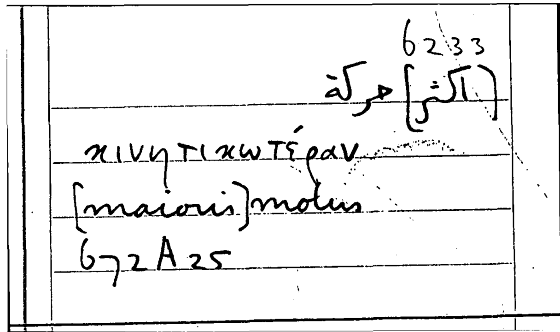 6233
[اكثر] حركة
κινητικωτέραν
[maioris] motus
672 A 25